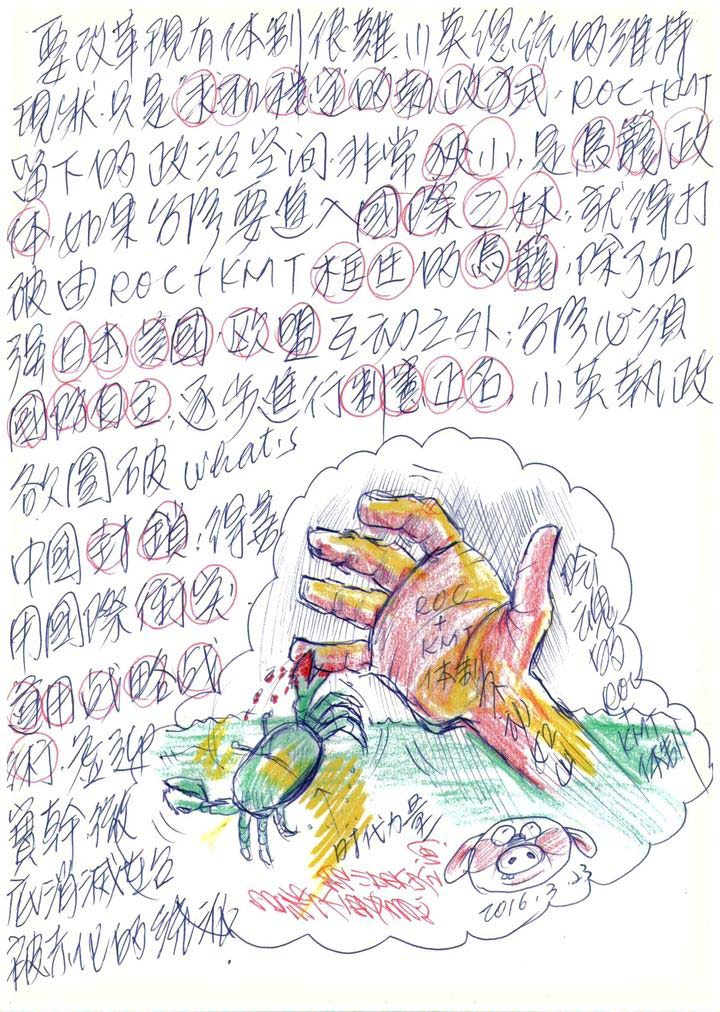 要改革現有体制很難.小英總統的維持
現狀.只是求和穩定的執政方式.ROC+KMT
留下的政治空间.非常狹小.是鳥籠政
体.如果台灣要進入國際之林.就得打
破由ROC+KMT框住的鳥籠.除了加
强日本美國.欧盟互动之外;台灣必須
國防自主.逐步進行制憲正名.小英執政
欲圖破 what's
中國封鎖.得善
用國際衝突.
運用战略战
術.
實幹.徹
底消滅
被赤化的
ROC
+
KMT
体制
的
ROC
+
KMT
体制
时代力量
2016.3.23